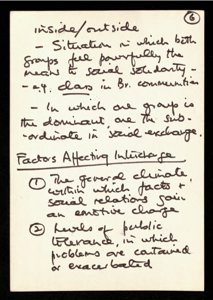 6
inside/outside
- Situation in which both
groups feel powerfully the
means to social solidarity -
- e.g. class in Br. communities
- In which one group is
the dominant, one the sub-
-ordinate in social exchange.
Factors Affecting Interchange
1 The general climate
within which facts &
social relations gain
an emotive charge
2 Levels of public
tolerance, in which
problems are contained
or exacerbated